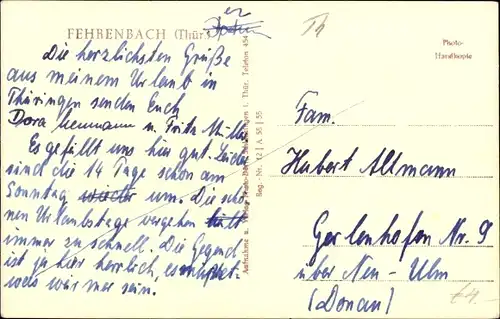 FEHRENBACH (Thür.)
Th
Photo-
Handkopie
Die herzlichsten Grüße
aus meinem Urlaub in
Thüringen senden Euch
Dora Neumann u. Fritz
Es gefällt uns hier gut. Leider
sind die 14 Tage schon am
Sonntag wieder um. Die schö
nen Urlaubstage vergehen
immer zu schnell. Die Gegend
ist ja hier herrlich,
sein.
Reg.-Nr. 12 | A 55 | 55
Fam.
Hubert Altmann
Gerlenhofen Nr. 9
über Neu-Ulm
(Donau)